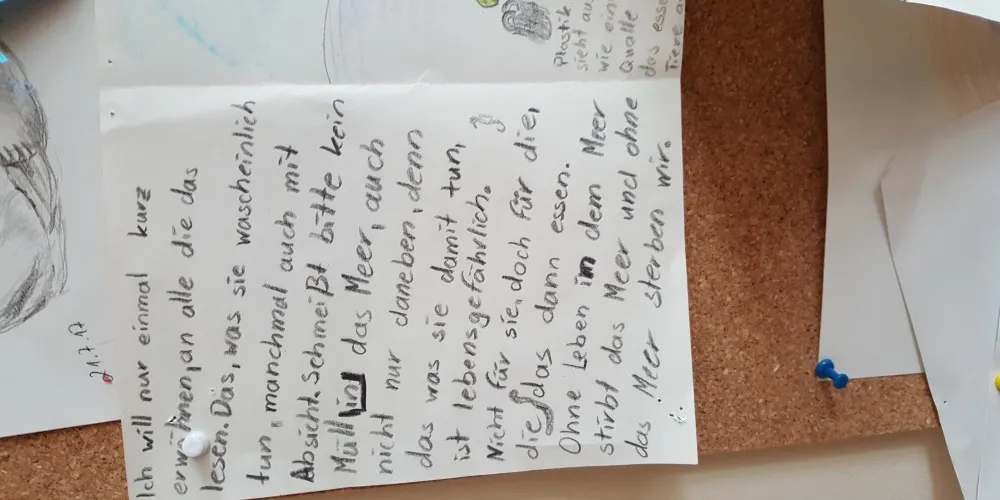 Plastik
sieht aus
wie ein
Qualle
das esse
Tiere
Ich will nur einmal kurz
erwähnen, an alle die das
lesen. Das, was sie wascheinlich
tun, manchmal auch mit
Absicht. Schmeißt bitte kein
Müll in das Meer, auch
nicht nur daneben, denn
das was sie damit tun,
ist lebensgefährlich.
Nicht für sie, doch für die,
die das dann essen.
Ohne Leben im dem Meer
stirbt das Meer und ohne
das Meer sterben wir.
21.7.17